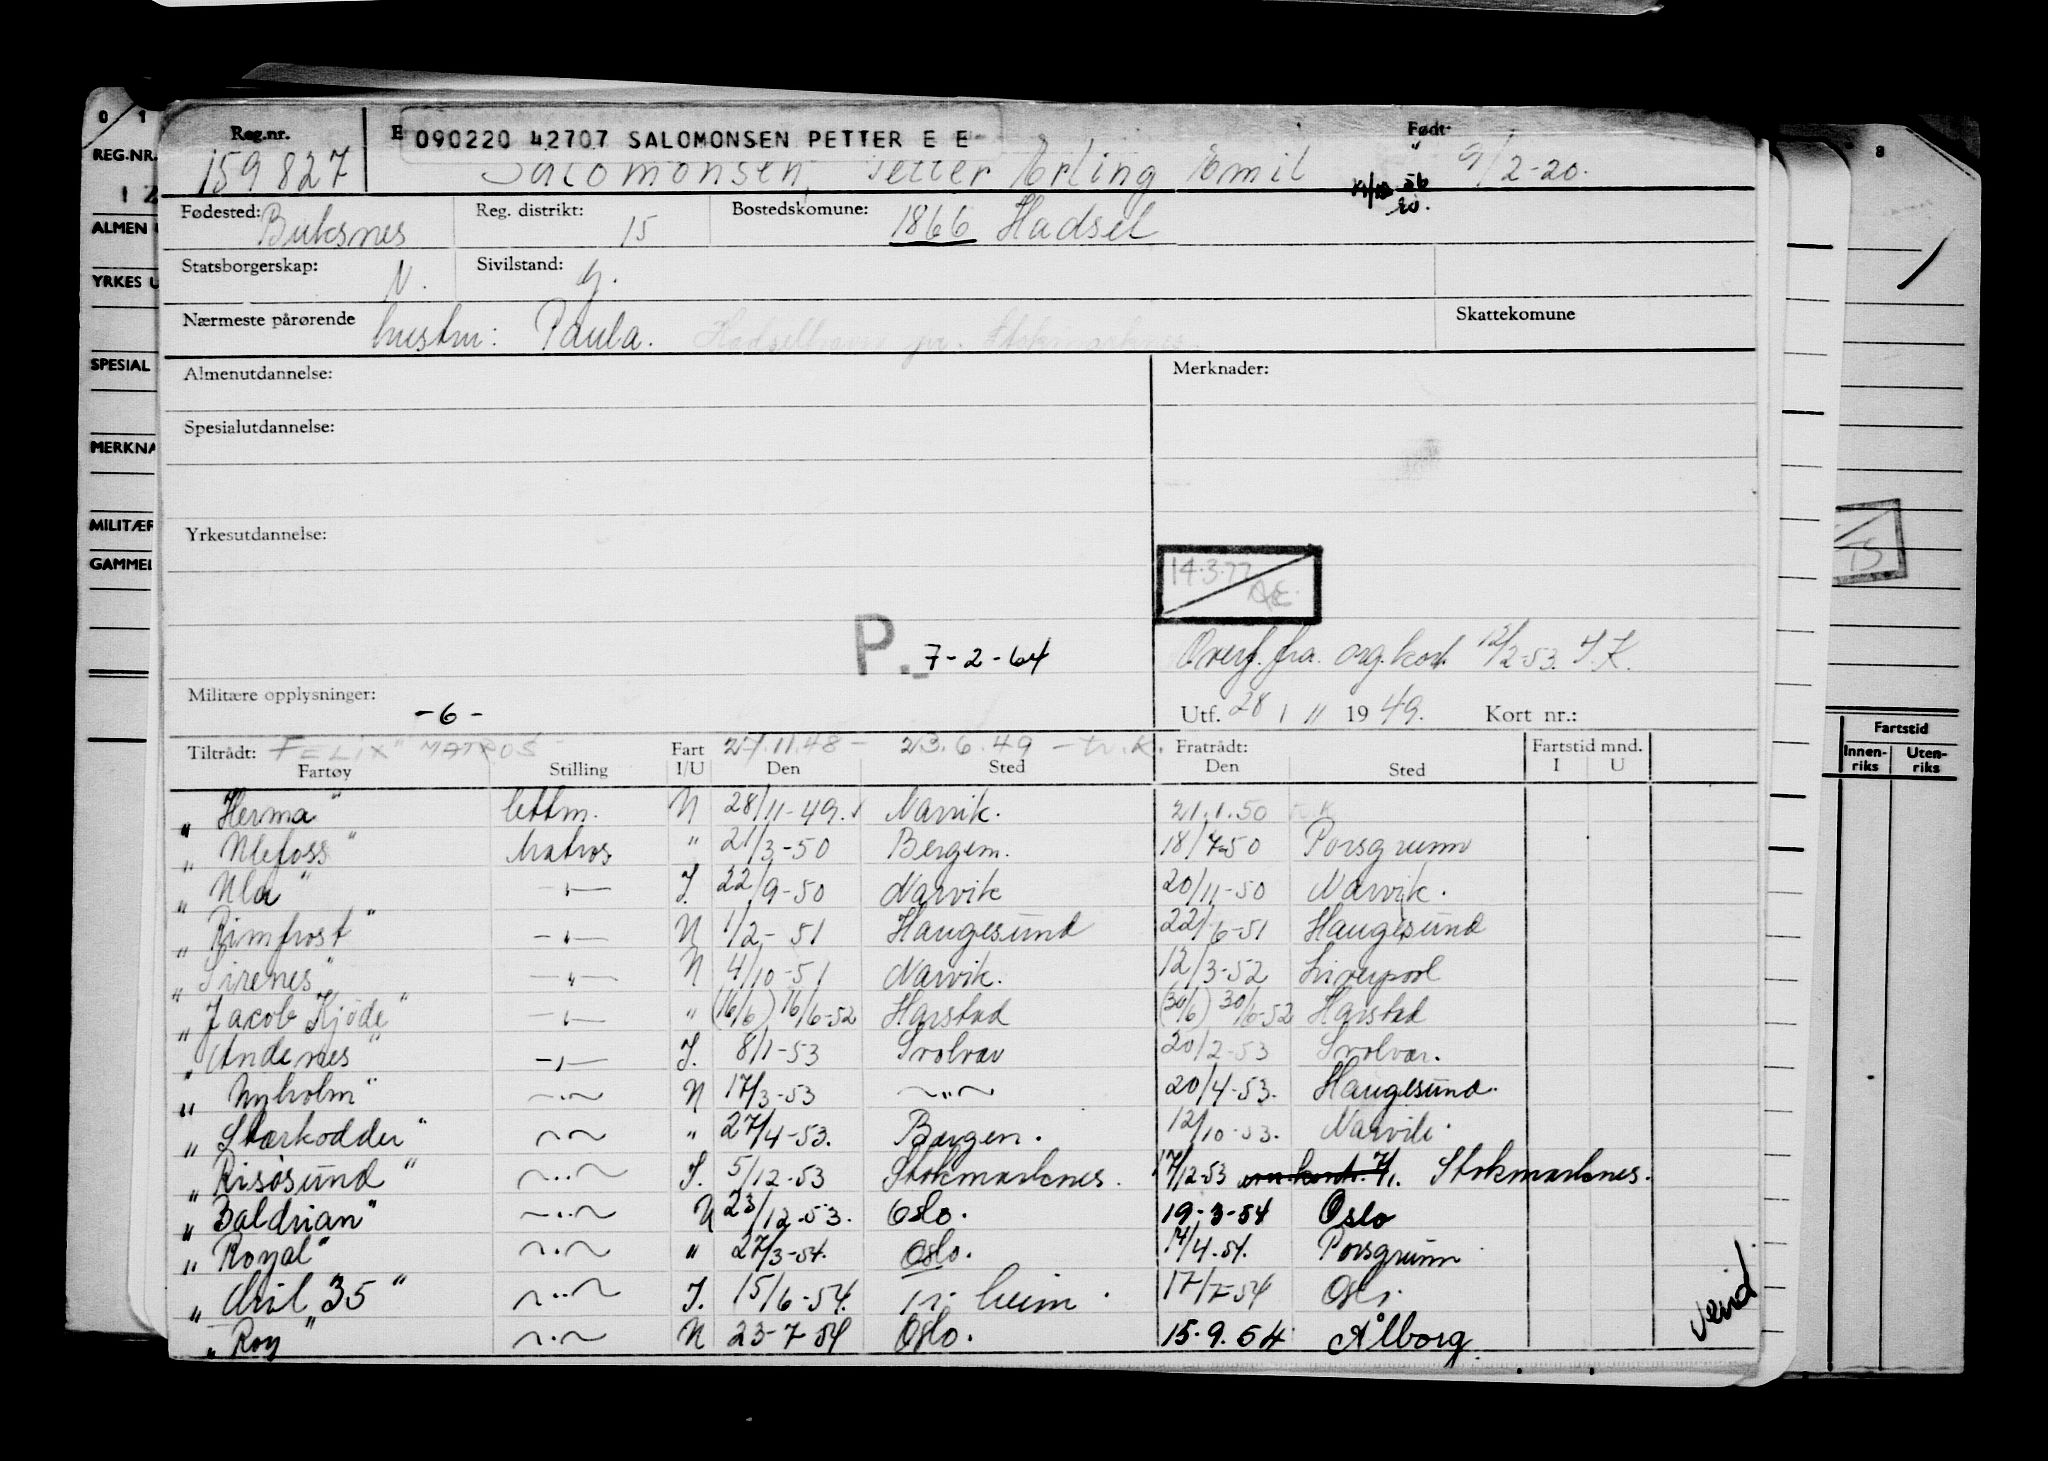 0 1
REG.NR.
ALMEN
YRKES U
SPESIAL
MERKNA
MILITÆR
GAMMEL
8
Fartstid
Innen-riks Uten-riks
Reg.nr. E 090220 42707 SALOMONSEN PETTER E E Født:
159827 Salomonsen, Petter Erling Emil 9/2-20.
Fødested: Buksnes Reg. distrikt: 15 Bostedskomune: 1866 Hadsel
Statsborgerskap: N. Sivilstand: g.
Nærmeste pårørende hustru: Paula. Skattekomune
Almenutdannelse: Merknader:
Spesialutdannelse:
Yrkesutdannelse:
14.3.77
P. 7-2-64 Overf. fra org.kort 12/2-53. J.K.
Militære opplysninger: -6- Utf. 28 / 11 1949. Kort nr.:
Tiltrådt: FELIX" MATROS Fart 27.11.48 - 23.6.49 Fratrådt: Fartstid mnd.
Fartøy Stilling I/U Den Sted Den Sted I U
"Herma" lettm. U 28/11-49. Narvik. 21.1.50
"Ulefoss" Matros " 21/3-50 Bergen. 18/7-50 Porsgrunn
"Ula" -"- I. 22/9-50 Narvik 20/11-50 Narvik.
"Rimfrost" -"- U 1/2-51 Haugesund 22/6-51 Haugesund
"Sirenes" -"- U 4/10-51 Narvik. 12/3-52 Liverpool
"Jacob Kjøde" -"- " (16/6) 16/6-52 Harstad (30/6) 30/6-52 Harstad
"Andenes" -"- I. 8/1-53 Svolvær 20/2-53 Svolvær.
"Nyholm" -"- U 17/3-53 -"- 20/4-53. Haugesund.
"Starkodder" -"- " 27/4-53. Bergen. 12/10-53. Narvik.
"Risøsund" -"- I. 5/12-53 Stokmarknes. 17/12-53 Stokmarknes.
"Baldrian" -"- U 23/12-53. Oslo. 19-3-54 Oslo
"Royal" -"- " 27/3-54. Oslo. 14/4.54. Porsgrunn
35" -"- I. 15/6-54. Tr.heim. 17/7-54 Oslo.
"Roy" -"- U 23-7-54 Oslo. 15.9.54 Ålborg.
Vend